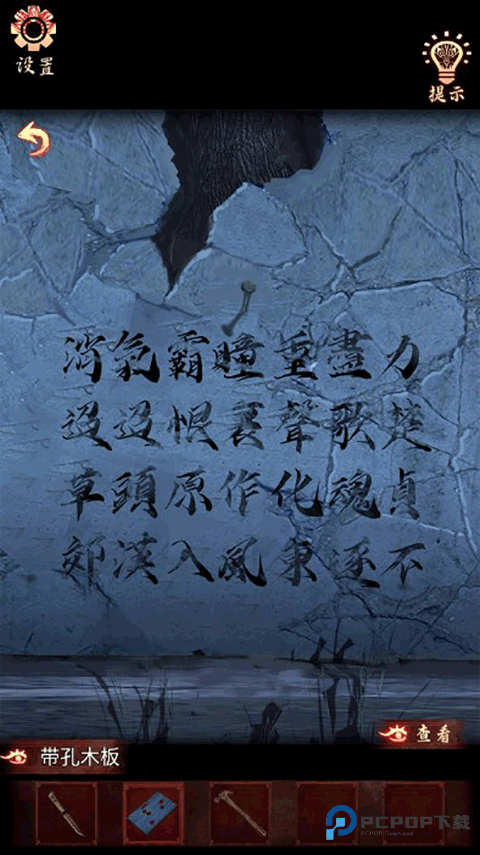 设置
提示
力盡重瞳霸氣消
楚歌聲裏恨迢迢
貞魂化作原頭草
不逐東風入漢郊
查看
带孔木板
PCPOP下载
PCPOP Download